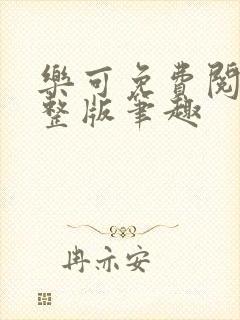 樂可免費閱
整版筆趣
冉亦安